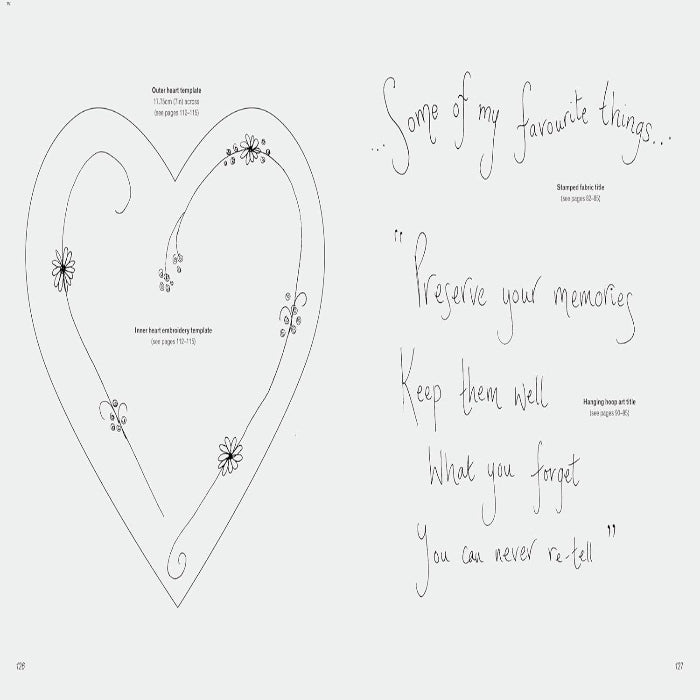 Outer heart template
(see pages 112–115)
Inner heart embroidery template
(see pages 112–115)
126
...Some of my favourite things...
Stamped fabric title
(see pages 82–85)
"Preserve your memories
Keep them well
Hanging hoop art title
(see pages 90–95)
What you forget
You can never re-tell"
127